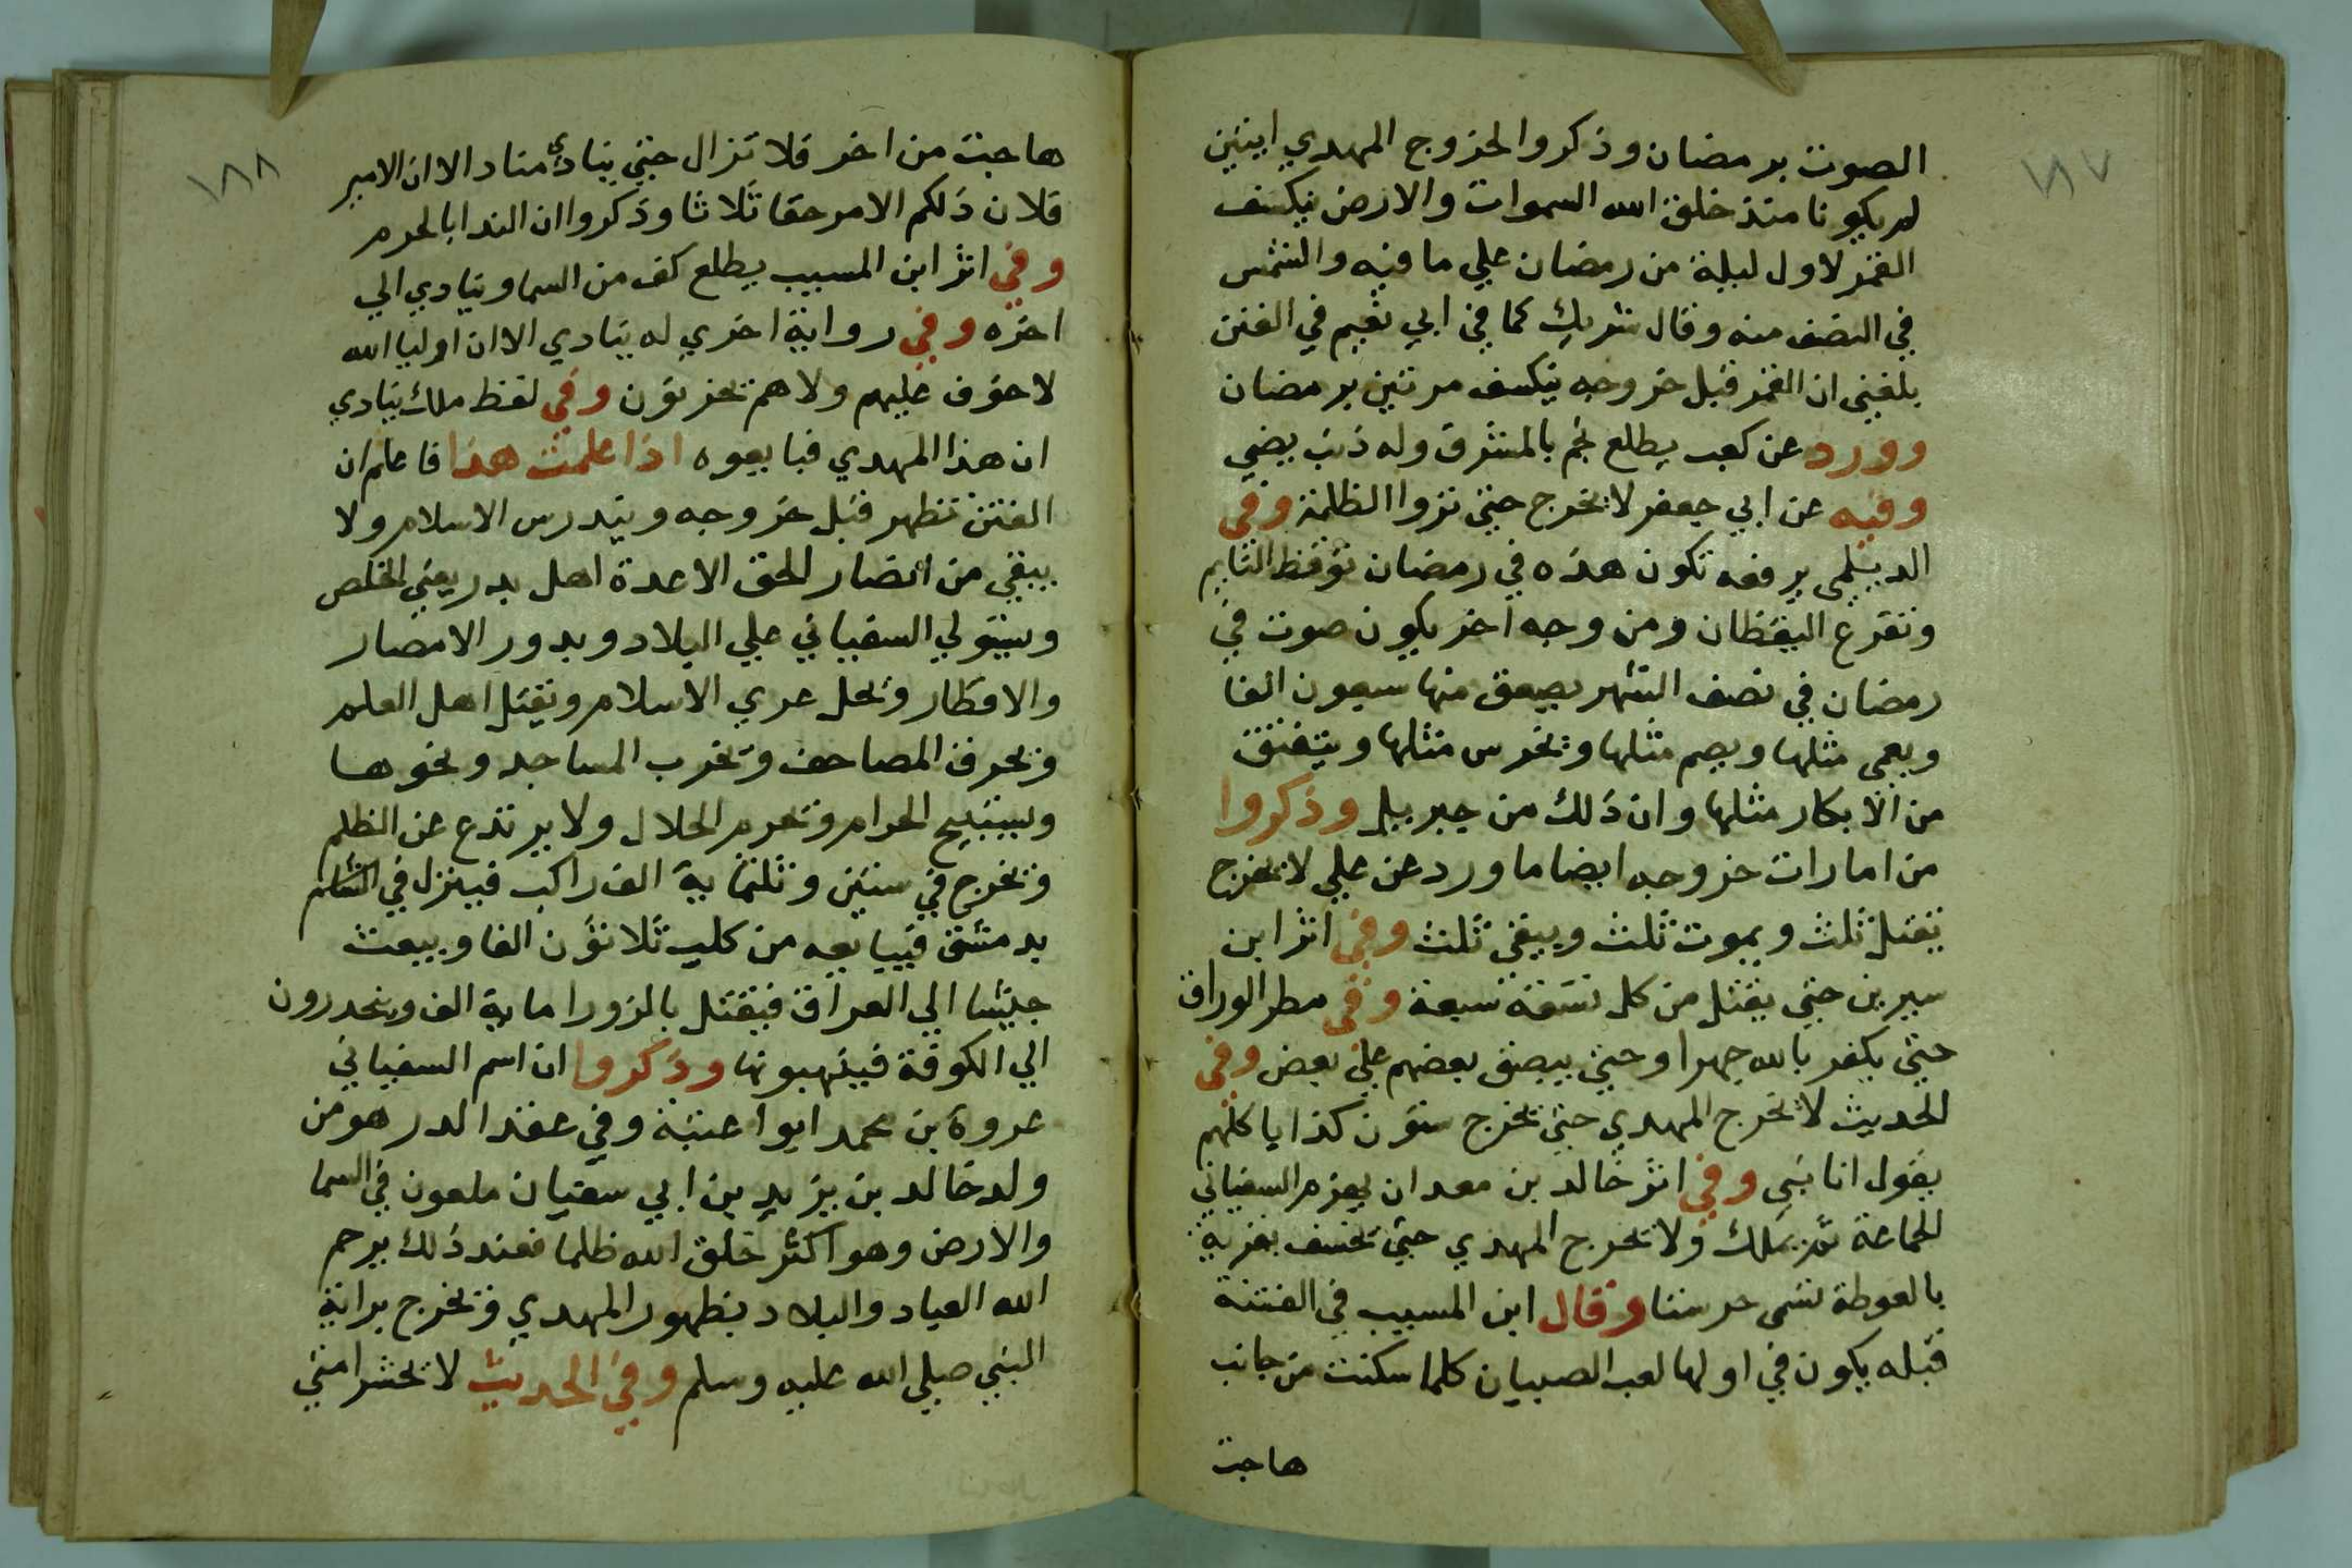 ١٨٧
الصوت برمضان وذكروا لخروج المهدي ايتين
لم يكونا منذ خلق الله السموات والارض ينكسف
القمر لاول ليلة من رمضان علي ما فيه والشمس
في النصف منه وقال شريك كما في ابي نعيم في الفتن
بلغني ان القمر قبل خروجه ينكسف مرتين برمضان
وورد عن كعب يطلع نجم بالمشرق وله ذنب يضي
وفيه عن ابي جعفر لا يخرج حتي تروا الظلمة وفي
الديلمي برفعه تكون هذه في رمضان توقظ النايم
وتفزع اليقظان ومن وجه اخر يكون صوت في
رمضان في نصف الشهر يصعق منها سبعون الفا
ويعمي مثلها ويصم مثلها وتخرس مثلها وينفتق
من الابكار مثلها وان ذلك من جبريل وذكروا
من امارات خروجه ايضا ما ورد عن علي لا يخرج
يقتل ثلث ويموت ثلث ويبقي ثلث وفي اثر ابن
سيرين حتي يقتل من كل تسعة سبعة وفي مطر الوراق
حتي يكفر بالله جهرا وحتي يبصق بعضهم علي بعض وفي
الحديث لا يخرج المهدي حتي يخرج ستون كذابا كلهم
يقول انا نبي وفي اثر خالد بن معدان يهزم السفياني
الجماعة ثم يملك ولا يخرج المهدي حتي يخسف بقرية
بالغوطة تسمي حرستا وقال ابن المسيب في الفتنة
قبله يكون في اولها لعب الصبيان كلما سكنت من جانب
هاجت
١٨٨
هاجت من اخر فلا تزال حتي ينادي مناد الا ان الامير
فلان ذلكم الامر حقا ثلاثا وذكروا ان الندا بالحرم
وفي اثر ابن المسيب يطلع كف من السما وينادي الي
اخره وفي رواية اخري له ينادي الا ان اوليا الله
لا خوف عليهم ولا هم يحزنون وفي لفظ ملك ينادي
ان هذا المهدي فبايعوه اذا علمت هذا فاعلم ان
الفتن تظهر قبل خروجه ويندرس الاسلام ولا
يبقي من انصار الحق الا عدة اهل بدر يعني المخلص
ويستولي السفياني علي البلاد ويدور الامصار
والاقطار وتحل عري الاسلام ويقتل اهل العلم
وتحرق المصاحف وتخرب المساجد ونحوها
ويستبيح الحرام وتحرم الحلال ولا يرتدع عن الظلم
وتخرج في ستين وثلثماية الف راكب فينزل في الشام
بدمشق فيبايعه من كلب ثلاثون الفا ويبعث
جيشا الي العراق فيقتل بالزورا ماية الف وينحدرون
الي الكوفة فينهبونها وذكروا ان اسم السفياني
عروة بن محمد ابوا عتبة وفي عقد الدرر هو من
ولد خالد بن يزيد بن ابي سفيان ملعون في السما
والارض وهو اكثر خلق الله ظلما فعند ذلك يرحم
الله العباد والبلاد بظهور المهدي وتخرج براية
النبي صلي الله عليه وسلم وفي الحديث لا تحشر امتي